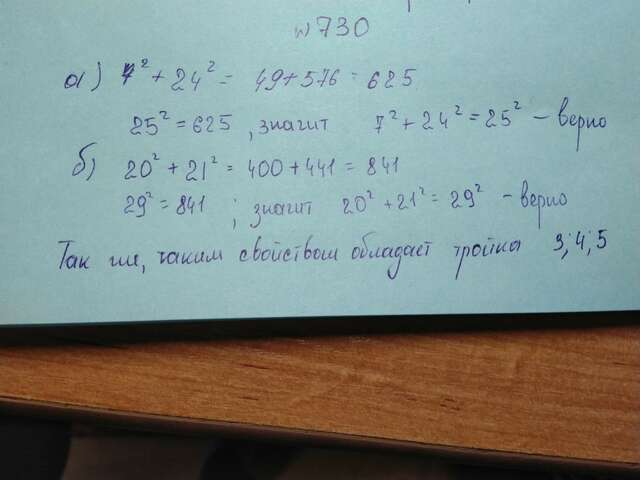 №730
а) 7² + 24² = 49+576 = 625
25² = 625 , значит 7² + 24² = 25² – верно
б) 20² + 21² = 400 + 441 = 841
29² = 841 ; значит 20² + 21² = 29² – верно
Так же, таким свойством обладает тройка 3; 4; 5